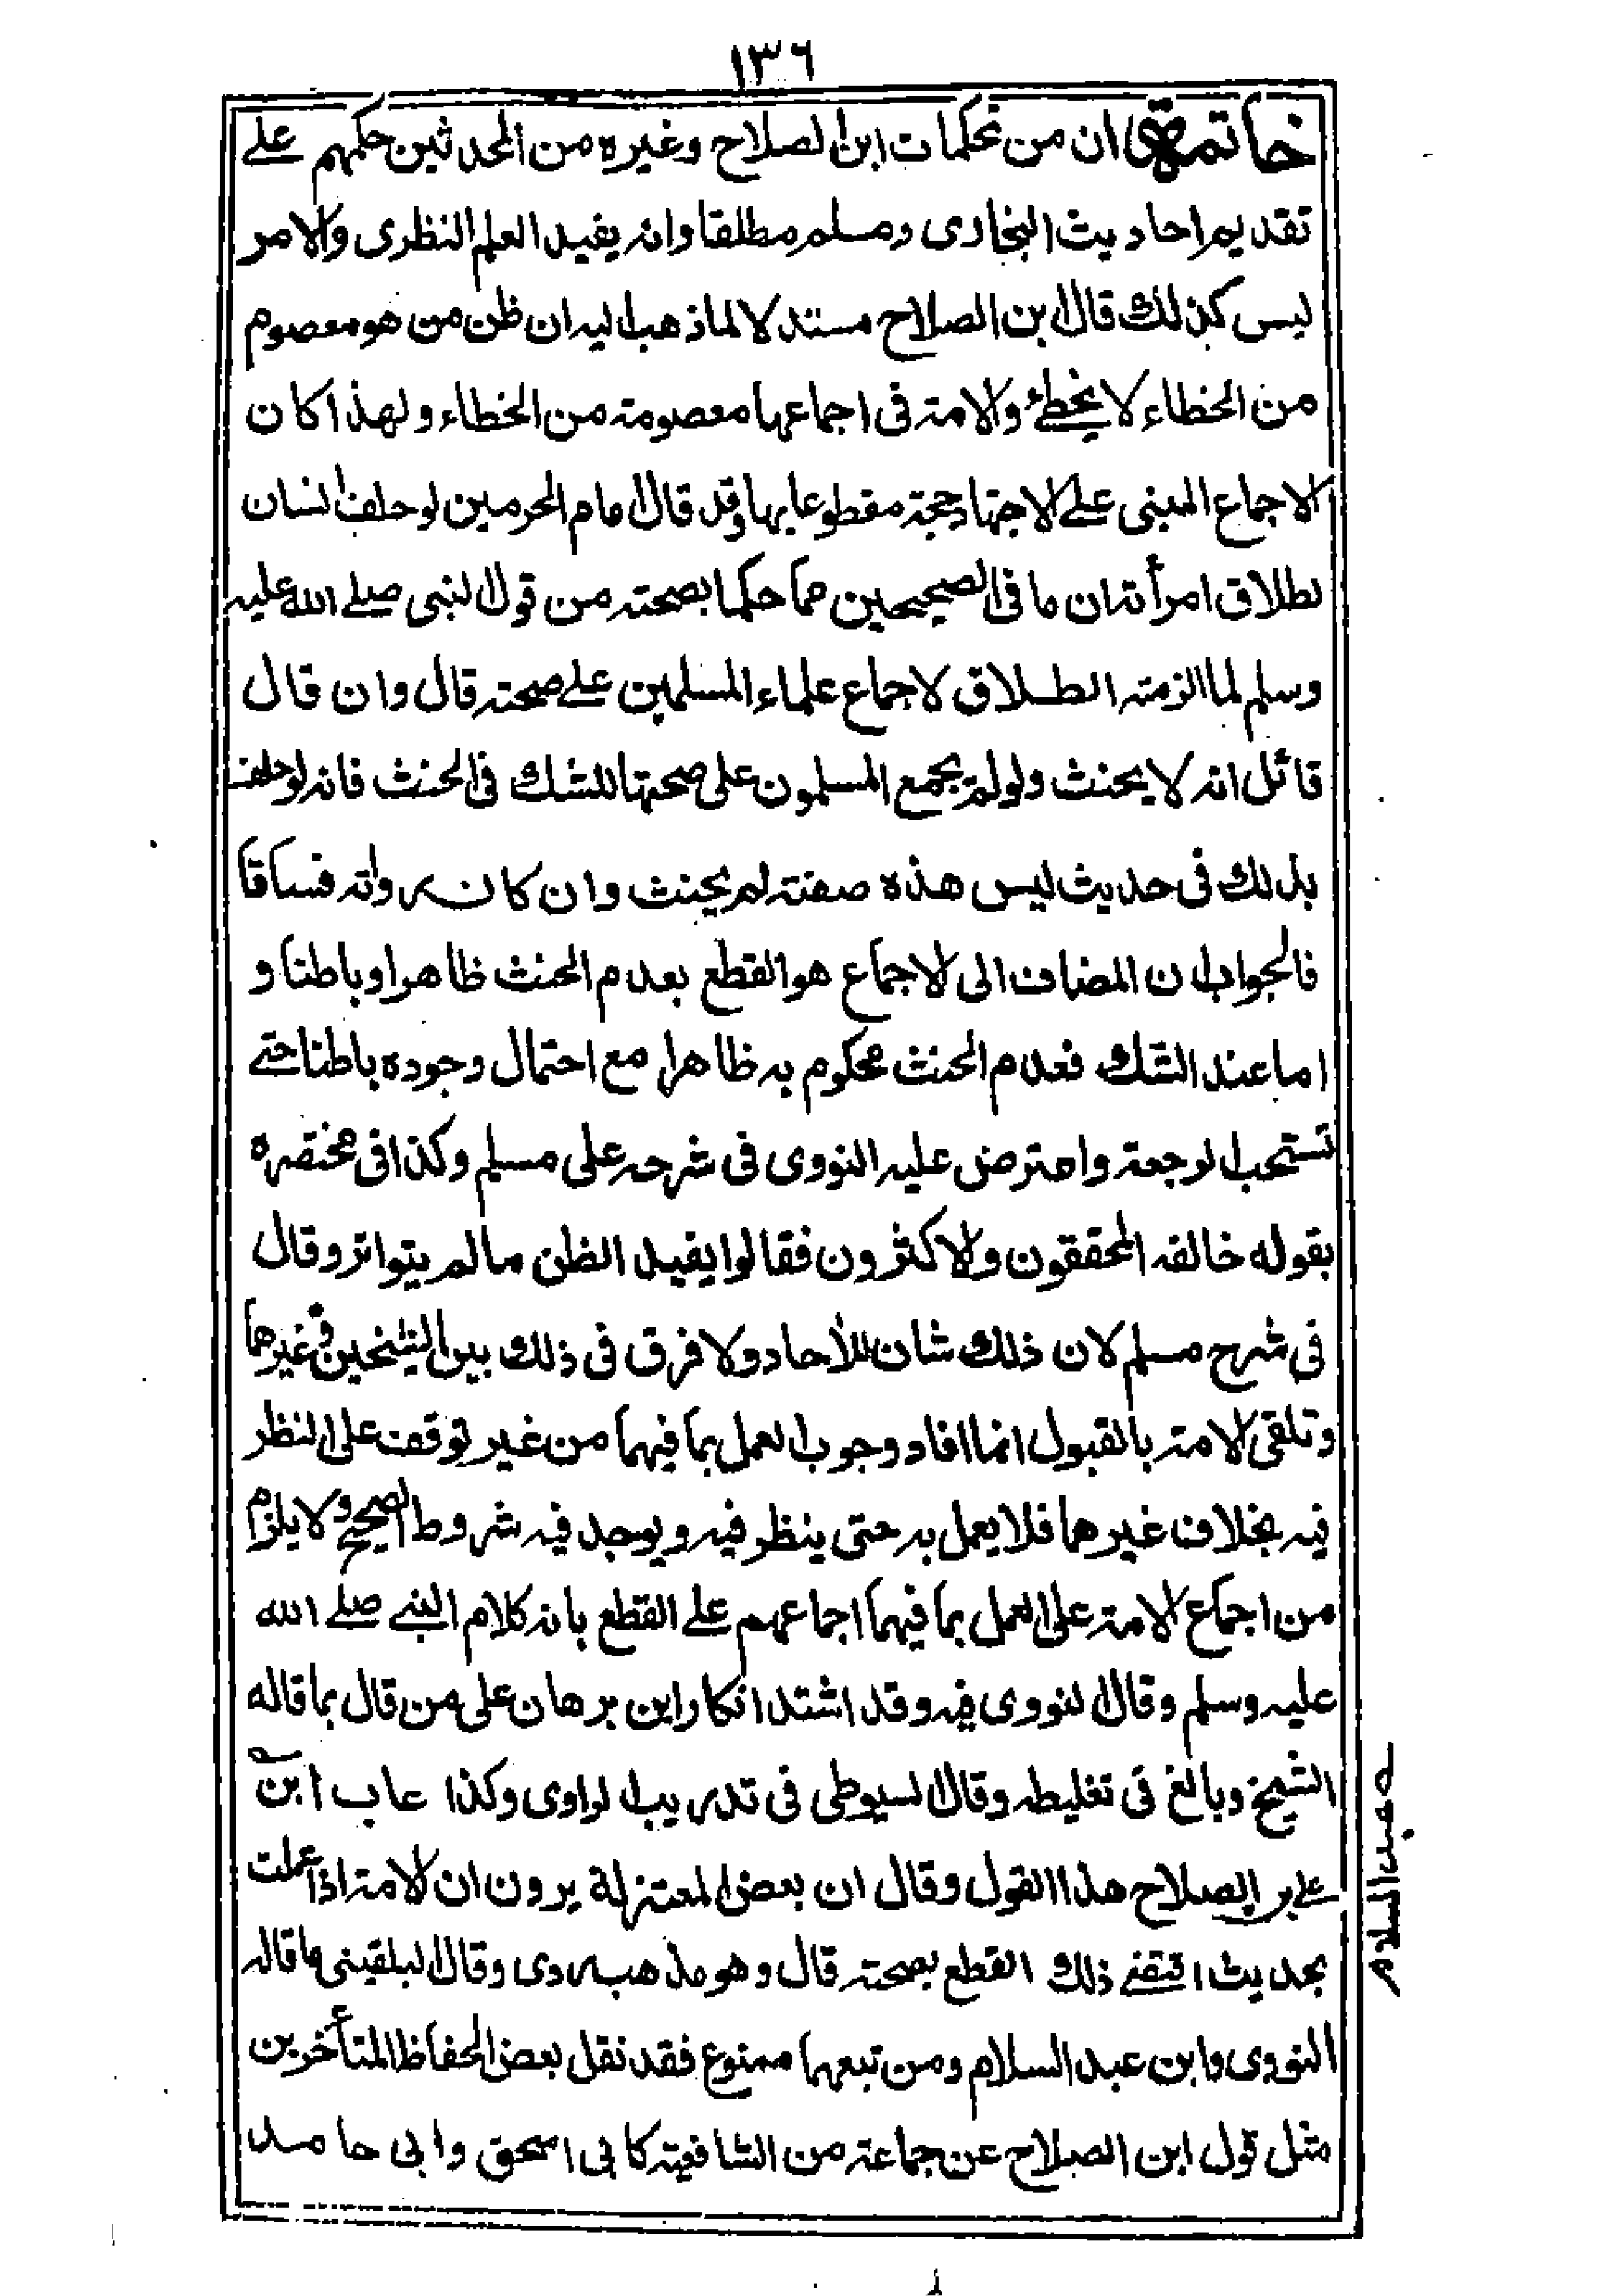 ١٣٦
خاتمة هي ان من تحكمات ابن الصلاح وغيره من المحدثين حكمهم على
تقديم احاديث البخارى ومسلم مطلقا وانه يفيد العلم النظرى والامر
ليس كذلك قال ابن الصلاح مستدلا لما ذهب اليه ان ظن من هو معصوم
من الخطاء لا يخطئ والامة فى اجماعها معصومة من الخطاء ولهذا كان
الاجماع المبنى على الاجتهاد حجة مقطوعا بها وقد قال امام الحرمين لو حلف انسان
بطلاق امرأته ان ما فى الصحيحين مما حكما بصحته من قول النبى صلے الله عليه
وسلم لما الزمته الطلاق لاجماع علماء المسلمين علے صحته قال وان قال
قائل انه لا يحنث ولو لم يجمع المسلمون على صحتها للشك فى الحنث فانه لو حلف
بذلك فى حديث ليس هذه صفته لم يحنث وان كان رواته فساقا
فالجواب ان المضاف الى الاجماع هو القطع بعدم الحنث ظاهرا وباطنا و
اما عند الشك فعدم الحنث محكوم به ظاهرا مع احتمال وجوده باطنا حتے
تستحب الرجعة واعترض عليه النووى فى شرحه على مسلم وكذا فى مختصره
بقوله خالفه المحققون والاكثرون فقالوا يفيد الظن مالم يتواتر وقال
فى شرح مسلم لان ذلك شان الآحاد ولا فرق فى ذلك بين الشيخين وغيرهما
وتلقى الامة بالقبول انما افاد وجوب العمل بما فيهما من غير توقف على النظر
فيه بخلاف غيرهما فلا يعمل به حتى ينظر فيه ويوجد فيه شروط الصحيح ولا يلزم
من اجماع الامة على العمل بما فيهما اجماعهم علے القطع بانه كلام النبے صلے الله
عليه وسلم وقال النووى فيه وقد اشتد انكار ابن برهان على من قال بما قاله
الشيخ وبالغ فى تغليطه وقال السيوطى فى تدريب الراوى وكذا عاب ابن
علے بن الصلاح هذا القول وقال ان بعض المعتزلة يرون ان الامة اذا عملت
بحديث اقتضے ذلك القطع بصحته قال وهو مذهب ردى وقال البلقينى ما قاله
النووى وابن عبد السلام ومن تبعهما ممنوع فقد نقل بعض الحفاظ المتأخرين
مثل قول ابن الصلاح عن جماعة من الشافعية كابى اسحق وابى حامد
عبد السلام